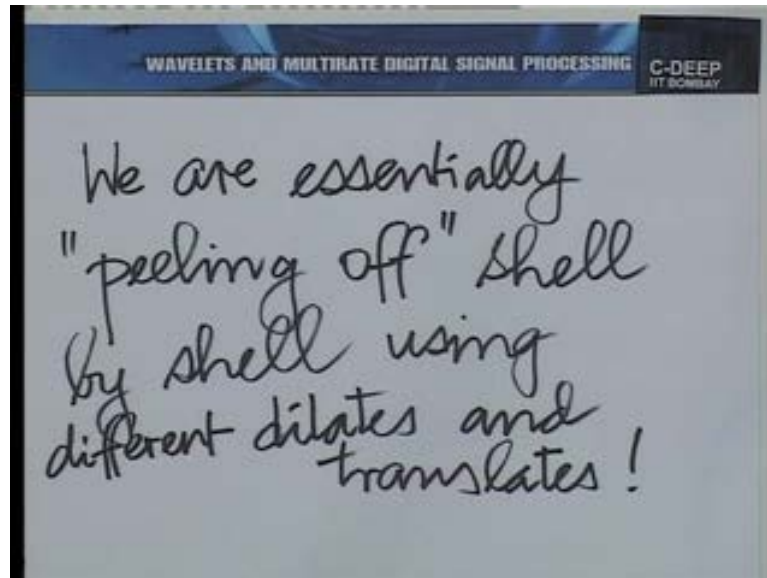 WAVELETS AND MULTIRATE DIGITAL SIGNAL PROCESSING
C-DEEP
IIT BOMBAY
We are essentially
"peeling off" shell
by shell using
different dilates and
translates!